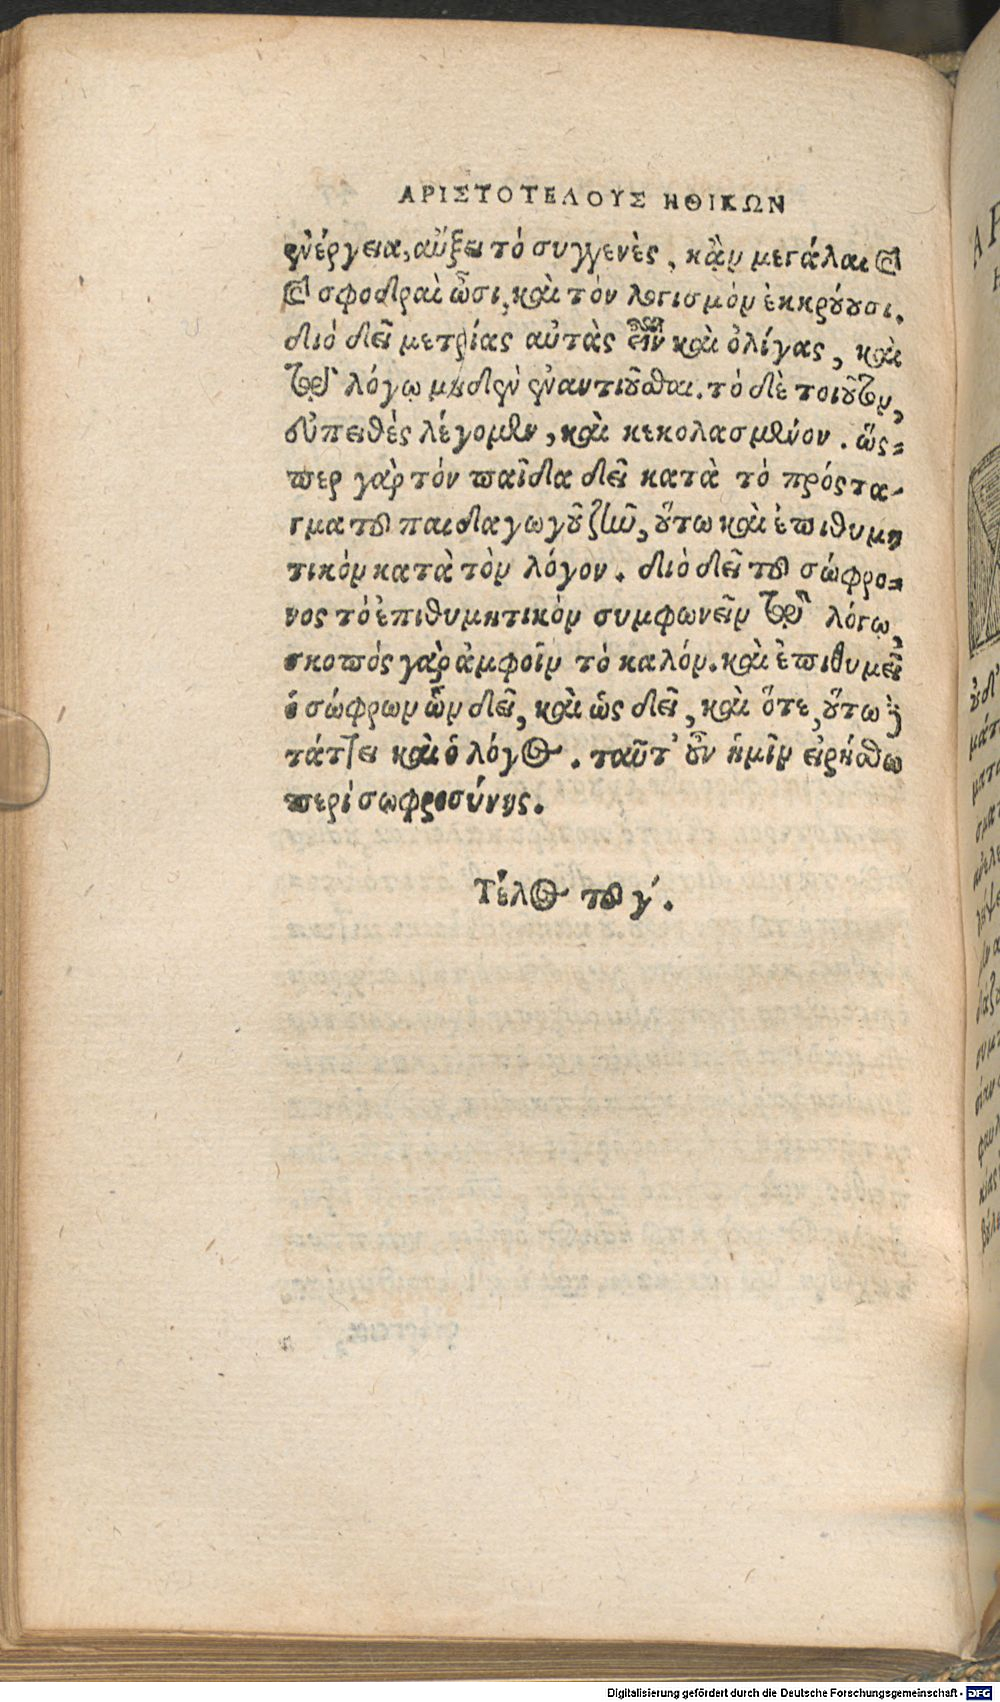 ΑΡΙΣΤΟΤΕΛΟΥΣ ΗΘΙΚΩΝ
ἐνέργεια, αὔξει τὸ συγγενὲς, κἂν μεγάλαι καὶ
καὶ σφοδραὶ ὦσι, καὶ τὸν λογισμὸν ἐκκρούουσι.
διὸ δεῖ μετρίας αὐτὰς εἶναι καὶ ὀλίγας, καὶ
τῷ λόγῳ μηδὲν ἐναντιοῦσθαι. τὸ δὲ τοιοῦτον,
εὐπειθὲς λέγομεν, καὶ κεκολασμένον. ὥς-
περ γὰρ τὸν παῖδα δεῖ κατὰ τὸ πρόστα-
γμα τοῦ παιδαγωγοῦ ζῆν, οὕτω καὶ ἐπιθυμη
τικὸν κατὰ τὸν λόγον. διὸ δεῖ τοῦ σώφρο-
νος τὸ ἐπιθυμητικὸν συμφωνεῖν τῷ λόγῳ,
σκοπὸς γὰρ ἀμφοῖν τὸ καλόν. καὶ ἐπιθυμεῖ
ὁ σώφρων ὧν δεῖ, καὶ ὡς δεῖ, καὶ ὅτε, οὕτω δὲ
τάττει καὶ ὁ λόγος. ταῦτ' οὖν ἡμῖν εἰρήσθω
περὶ σωφροσύνης.
Τέλος τοῦ γ'.
Digitalisierung gefördert durch die Deutsche Forschungsgemeinschaft - DFG